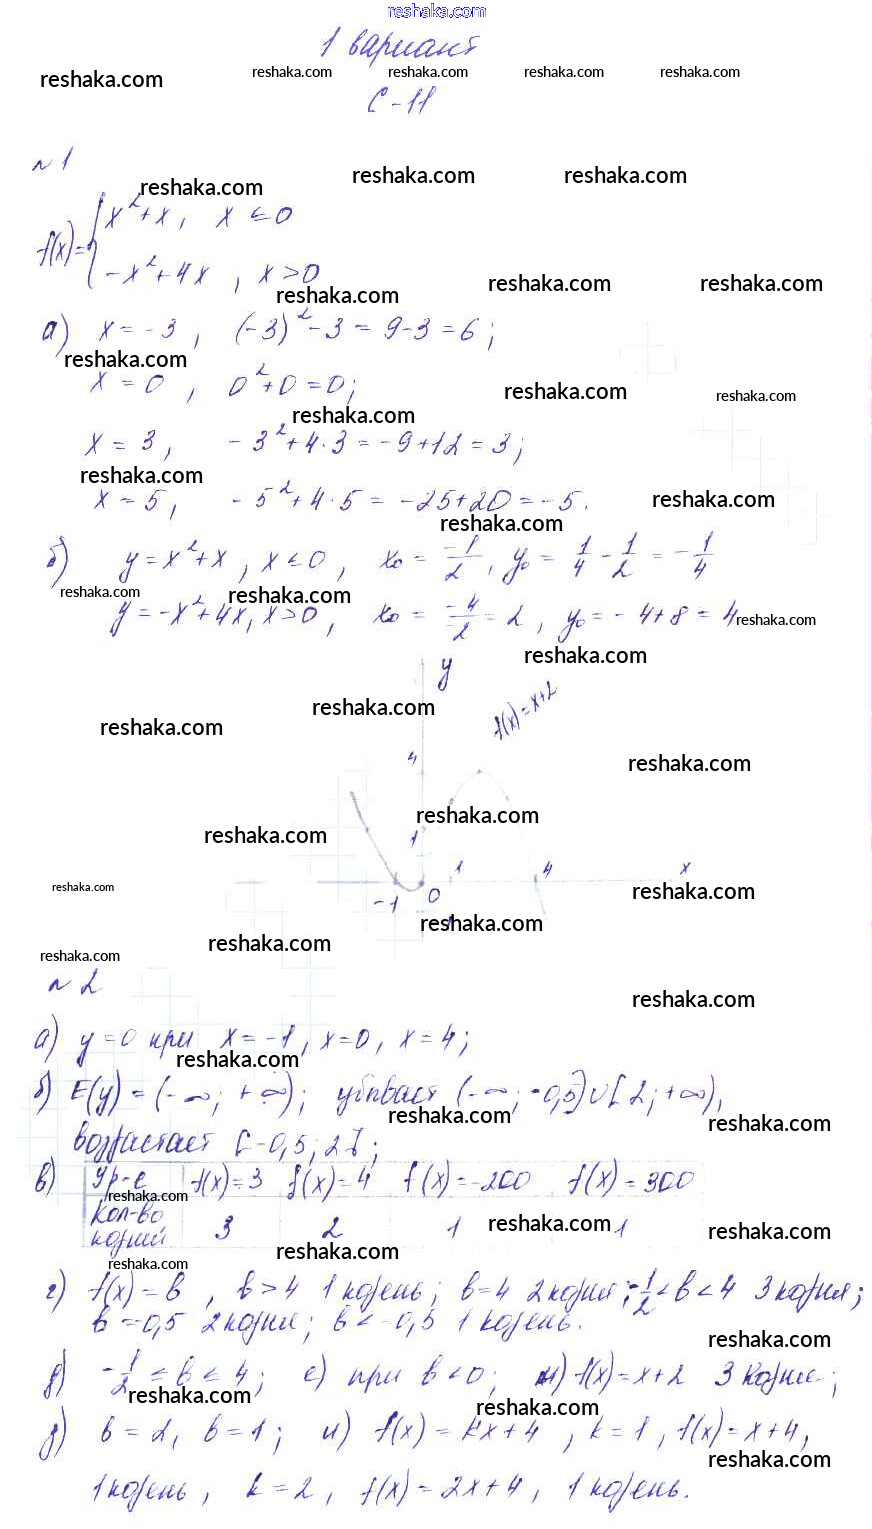 reshaka.com
1 вариант
reshaka.com reshaka.com reshaka.com reshaka.com reshaka.com
С-11
№1
reshaka.com reshaka.com reshaka.com
f(x)= { x²+x, x ≤ 0
-x²+4x, x>0
reshaka.com reshaka.com reshaka.com
а) x = -3, (-3)²-3 = 9-3 = 6;
reshaka.com
x = 0, 0²+0 = 0;
reshaka.com reshaka.com
reshaka.com
x = 3, -3²+4·3 = -9+12 = 3;
reshaka.com
x = 5, -5²+4·5 = -25+20 = -5.
reshaka.com
reshaka.com
б) y = x²+x, x ≤ 0, x₀ = -1/2, y₀ = 1/4 - 1/2 = -1/4
reshaka.com reshaka.com
y = -x²+4x, x>0, x₀ = -4/-2 = 2, y₀ = -4+8 = 4
reshaka.com
reshaka.com
y
f(x)=x+2
reshaka.com
reshaka.com
4
reshaka.com
reshaka.com
reshaka.com
1
1 4 x
reshaka.com reshaka.com
-1 0
reshaka.com
reshaka.com
reshaka.com
№2
reshaka.com
а) y=0 при x=-1, x=0, x=4;
reshaka.com
б) E(y)=(-∞; +∞); убывает (-∞; -0,5]∪[2; +∞),
reshaka.com reshaka.com
возрастает [-0,5; 2];
в) Ур-е f(x)=3 f(x)=4 f(x)=-200 f(x)=300
reshaka.com
Кол-во корней 3 2 1 1
reshaka.com reshaka.com
reshaka.com
reshaka.com
г) f(x)=b, b>4 1 корень; b=4 2 корня; -1/2<b<4 3 корня;
b=-0,5 2 корня; b<-0,5 1 корень.
reshaka.com
д) -1/2 ≤ b ≤ 4; е) при b<0; ж) f(x)=x+2 3 корня;
reshaka.com reshaka.com
з) b=2, b=1; и) f(x)=kx+4, k=1, f(x)=x+4,
reshaka.com
reshaka.com
1 корень, k=2, f(x)=2x+4, 1 корень.